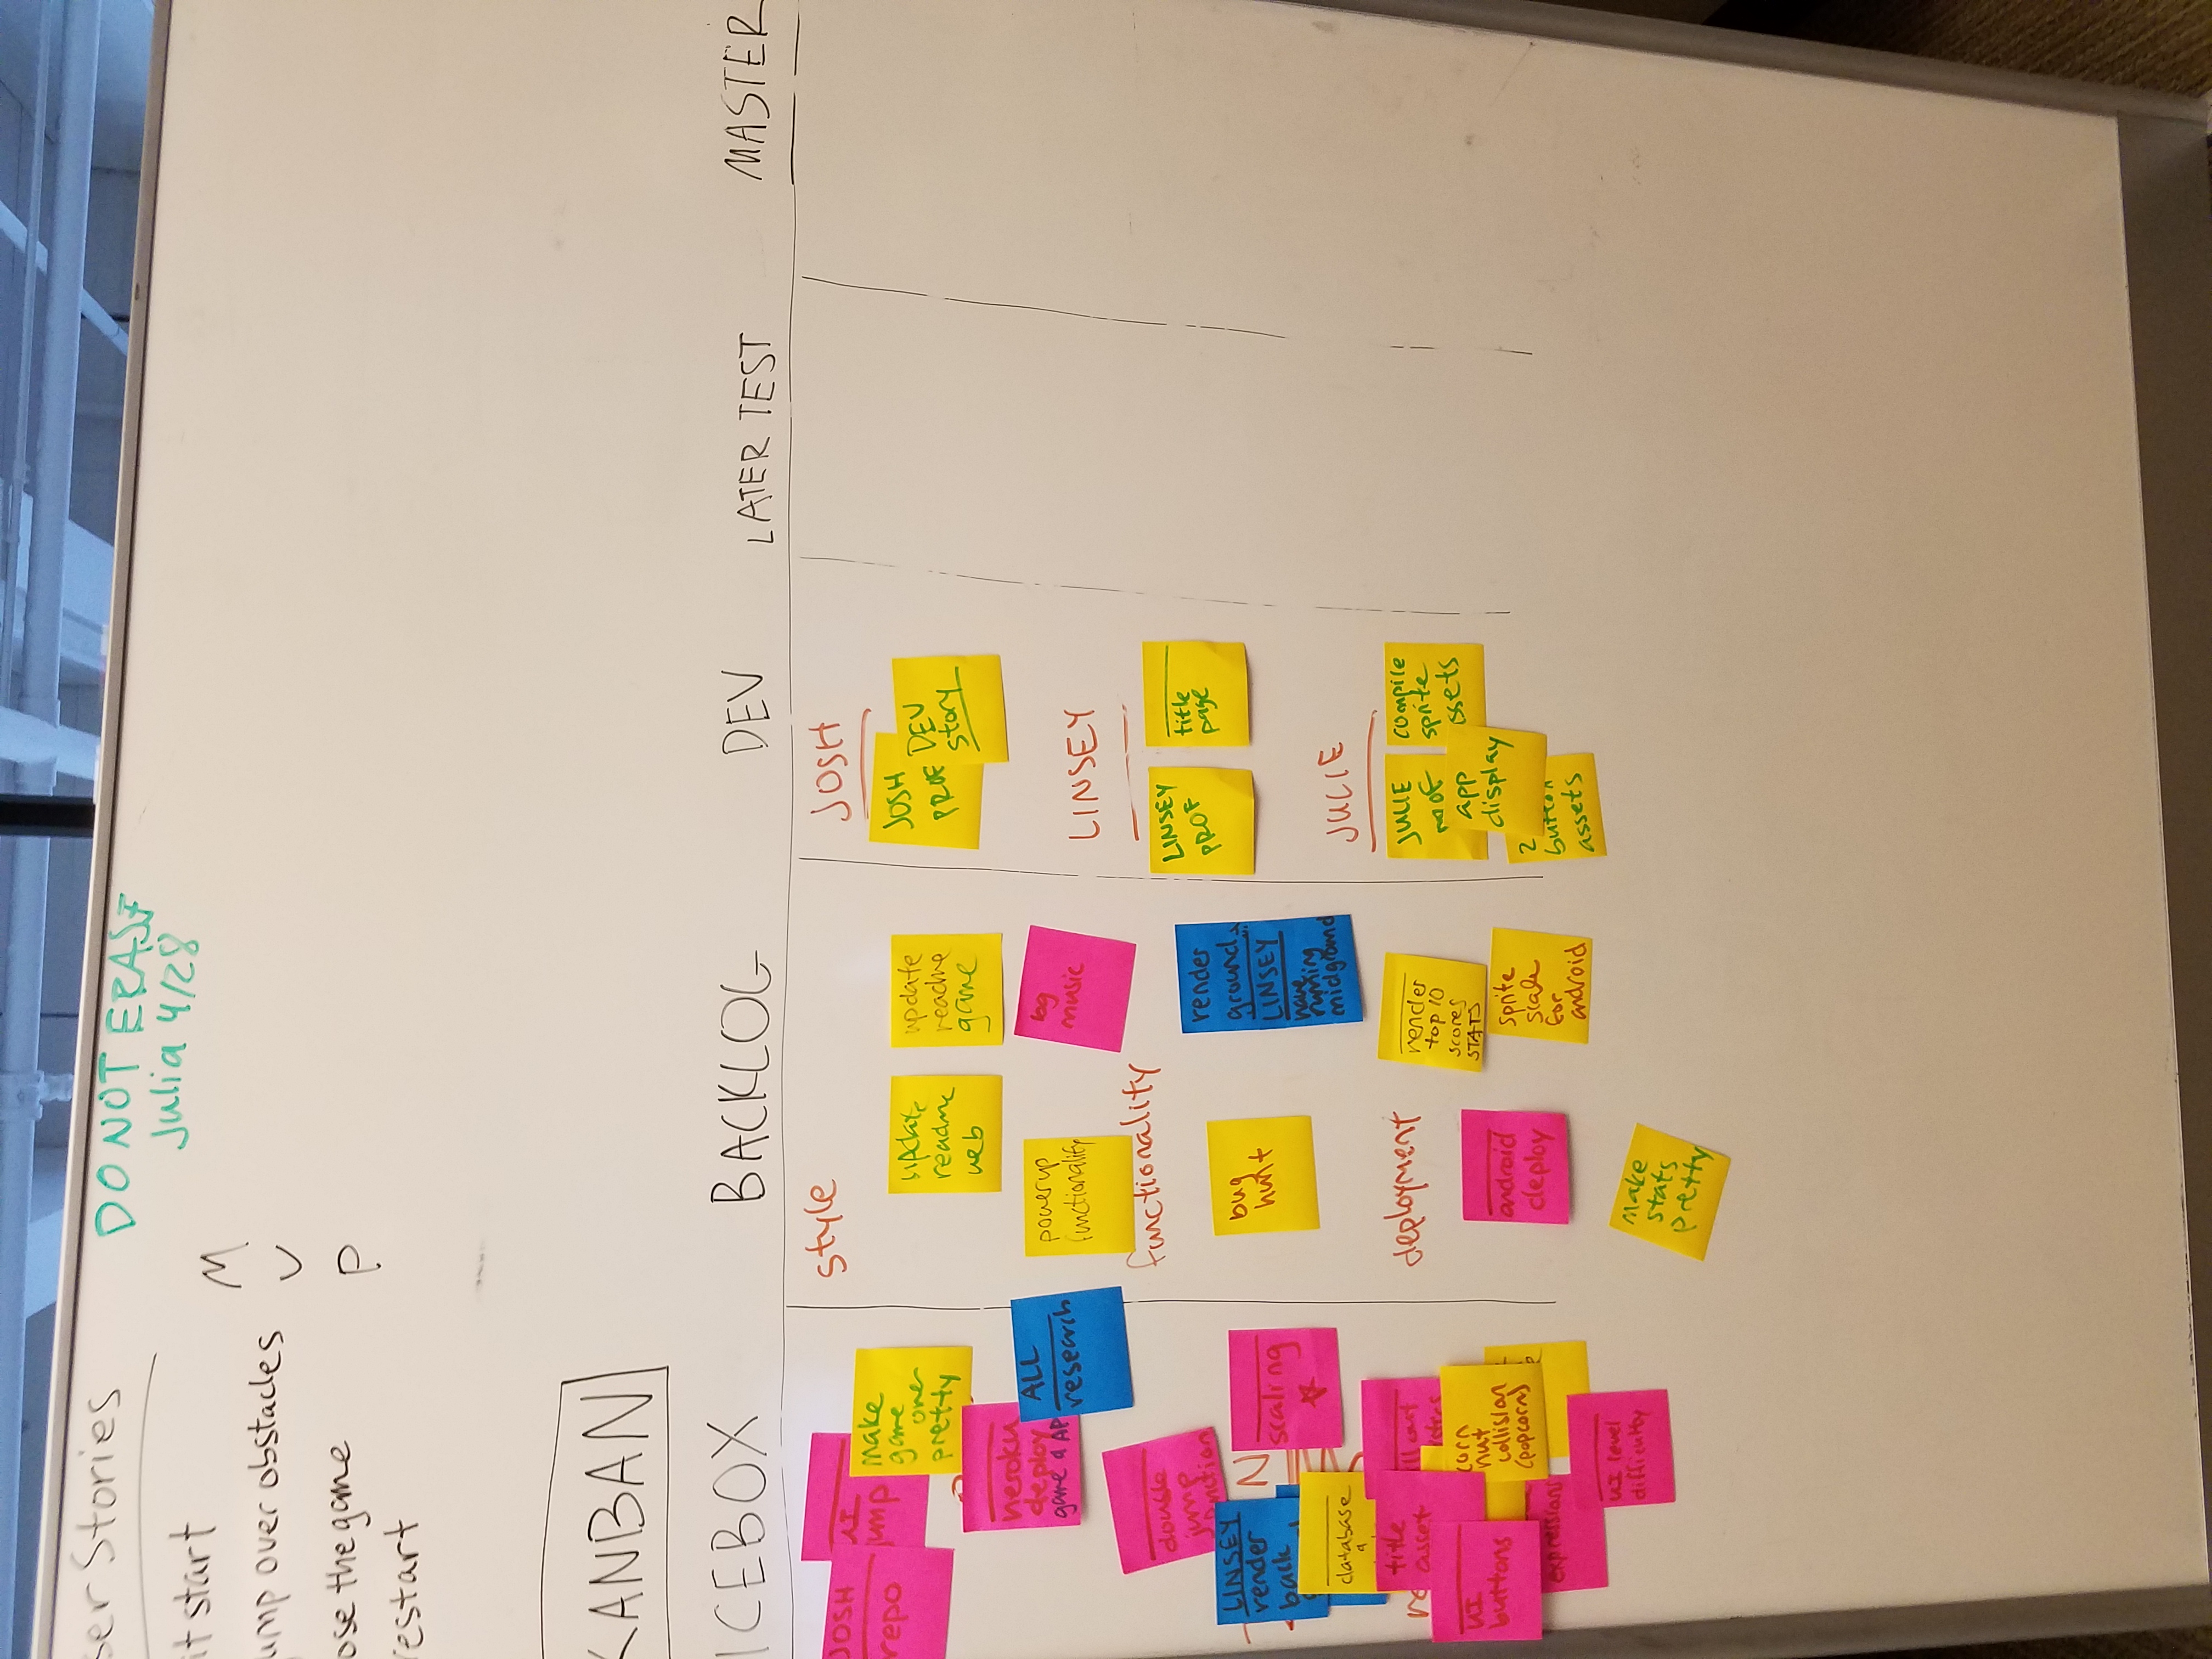 ser Stories
it start
ump over obstacles
ose the game
restart
M
V
P
DO NOT ERASE
Julia 4/28
KANBAN
ICEBOX
BACKLOG
DEV
LATER TEST
MASTER
JOSH
repo
UI
jump
make
game
over
pretty
heroku
deploy
game & AP
ALL
research
double
jump
LINSEY
render
back
N
scaling
database
&
title
asset
ll out
UI
buttons
corn
nut
collision
(popcorn)
expressions
UI level
difficulty
style
update
readme
web
update
readme
game
powerup
functionality
bg
music
functionality
bug
hunt
render
ground
LINSEY
have
running
midground
deployment
render
top 10
scores
STATS
android
deploy
sprite
scale
for
android
make
stats
pretty
JOSH
JOSH
PROF
DEV
story
LINSEY
LINSEY
PROF
title
page
JULIE
JULIE
PROF
compile
sprite
assets
app
display
2
button
assets